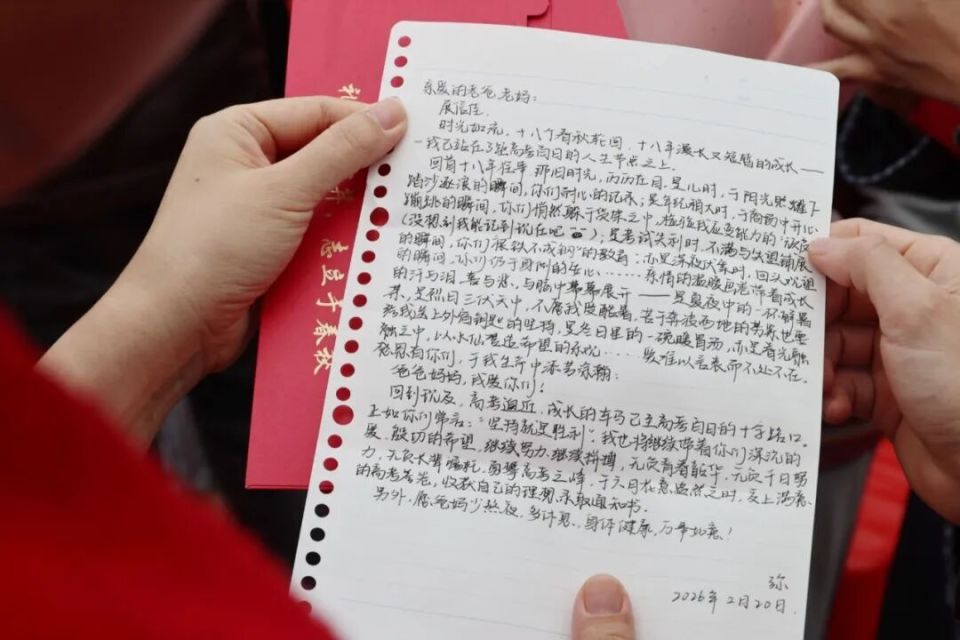 亲爱的老爸老妈：
展信佳。
时光如流，十八个春秋轮回，十八年漫长又短暂的成长——
我已站在了距高考百日的人生节点之上。
回首十八年往事，那旧时光，历历在目。是儿时，于阳光照耀下
踏沙逐浪的瞬间，你们耐心的记录；是年纪稍大时，于商场中开心
蹦跳的瞬间，你们悄然躲于袋后之中，检验我应变能力的"放应
(没想到我能记到现在吧)；是考试失利时，不满与失望铺展
的瞬间，你们"恨铁不成钢"的教育；亦是深夜伏案时，回头观望
的瞬间，你们仍于厨所的安心……亲情的温暖画卷带着成长
的汗与泪、喜与悲，与脑中幕幕展开——是夏夜中的一杯解暑
茶，是烈日三伏天中，不顾我没醒着，苦于奔波两地的劳累也要
给我送上外面钥匙的坚持，是冬日里的一碗暖胃汤，亦是春光融
融之中，以水仙寄送希望的祝愿……爱难以言表而不处不在。
感恩有你们，于我生命中添芳添翰：
爸爸妈妈，我爱你们！
回到现在，高考迫近，成长的车马已至高考百日的十字路口。
正如你们常言："坚持就是胜利"，我也将继续带着你们深沉的
爱、殷切的希望，继续努力，继续拼搏，无负青春韶华，无负千日努
力，无负长辈嘱托，勇攀高考之峰，于六月花意盎然之时，交上满意
的高考答卷，收获自己的理想录取通知书。
另外，愿爸妈少熬夜，多休息，身体健康，万事如意！
弥
2026年2月20日.
礼
志立千春秋